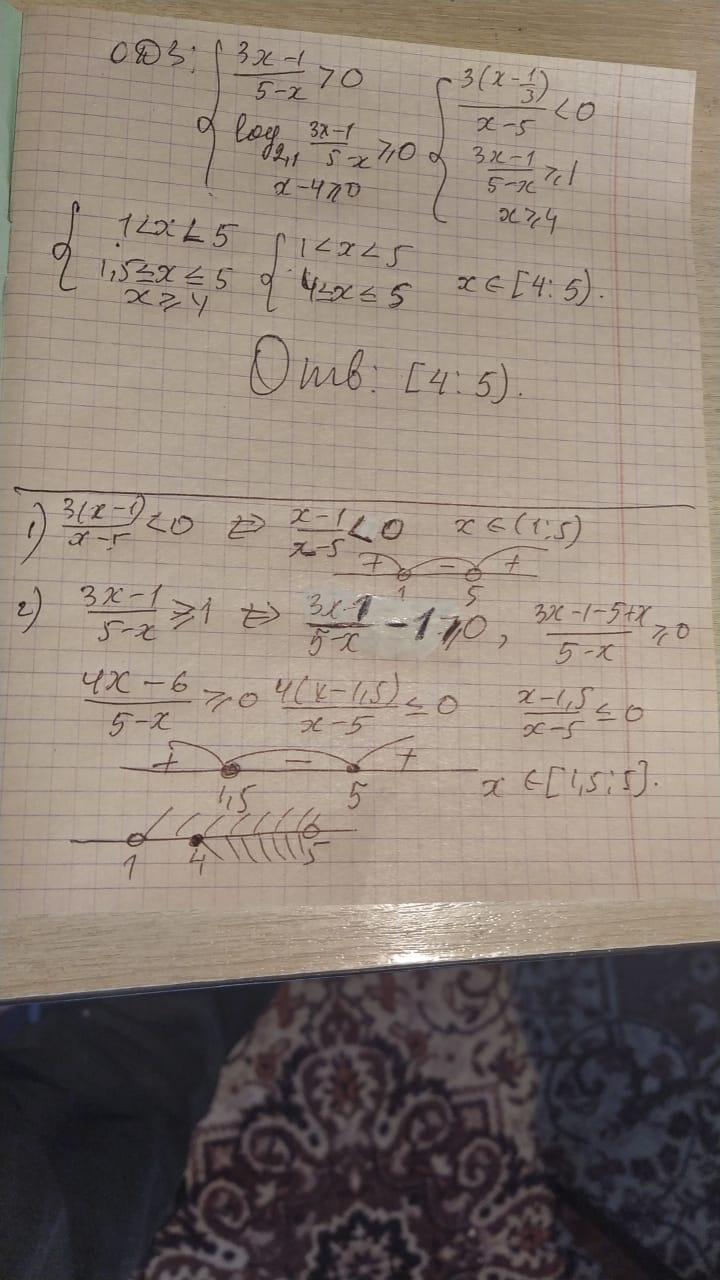 ОДЗ: { (3x-1)/(5-x) > 0 { (3(x-1/3))/(x-5) < 0
log_{2,1} (3x-1)/(5-x) ≥ 0 (3x-1)/(5-x) ≥ 1
x-4 ≥ 0 x ≥ 4
{ 1 < x < 5 { 1 < x < 5
1,5 ≤ x ≤ 5 4 ≤ x ≤ 5 x ∈ [4; 5).
x ≥ 4
Отв: [4; 5).
1) (3(x-1))/(x-5) < 0 ⇔ (x-1)/(x-5) < 0 x ∈ (1; 5)
+ - +
1 5
2) (3x-1)/(5-x) ≥ 1 ⇔ (3x-1)/(5-x) - 1 ≥ 0, (3x-1-5+x)/(5-x) ≥ 0
(4x-6)/(5-x) ≥ 0 (4(x-1,5))/(x-5) ≤ 0 (x-1,5)/(x-5) ≤ 0
+ - +
1,5 5 x ∈ [1,5; 5].
1 4 5